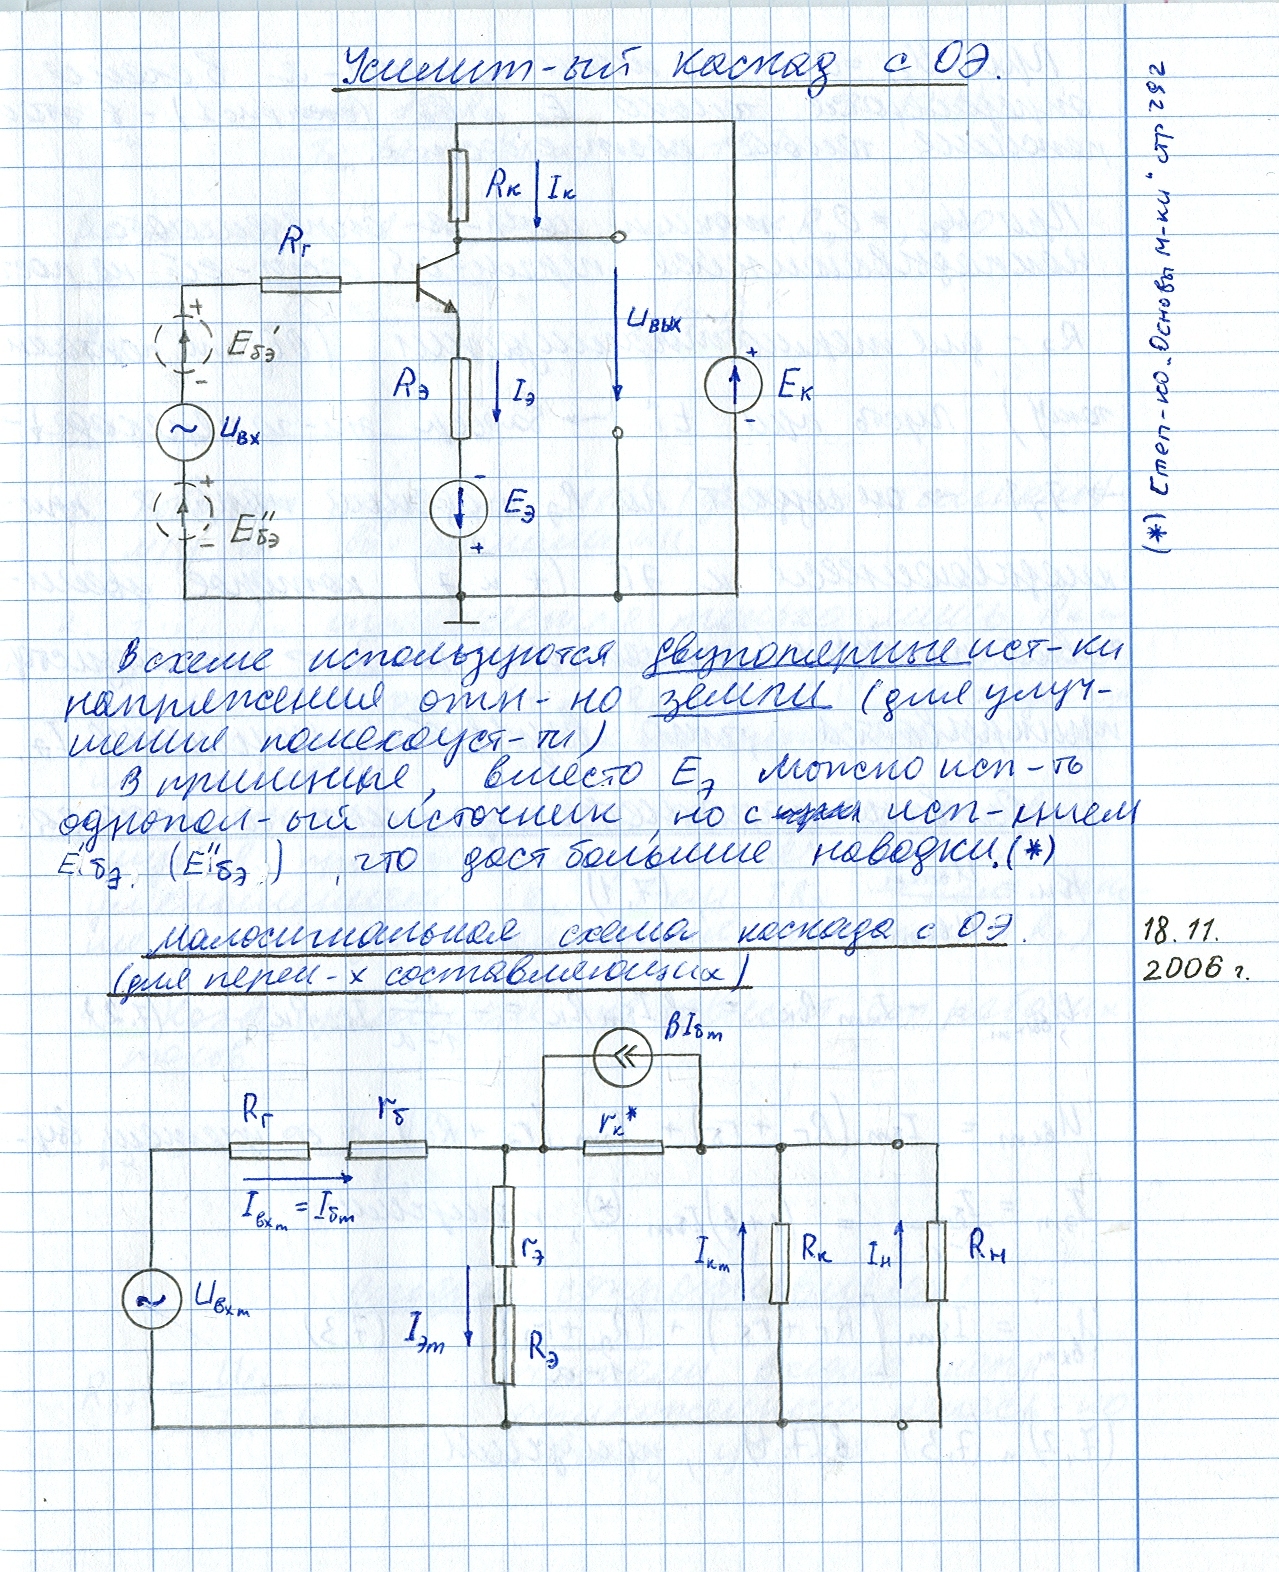 Усилит-ый каскад с ОЭ.
(*) Степ-ко „Основы м-ки“ стр 292
Rк Iк
Rг
+
Eбэ'
-
Uвых
Rэ Iэ
+
Eк
-
~ Uвх
+
Eбэ''
-
-
Eэ
+
В схеме используются двуполярные ист-ки
напряжения отн-но земли (для улуч-
шения помехоуст-ти)
В принципе, вместо Eэ можно исп-ть
однопол-ый источник, но с исп-нием
E'бэ (E''бэ), что даст большие наводки. (*)
Малосигнальная схема каскада с ОЭ.
(для перем-х составляющих)
18.11.
2006 г.
BIбm
Rг rб rк*
Iвхm = Iбm
rэ Iкm Rк Iн Rн
~ Uвхm
Iэm Rэ